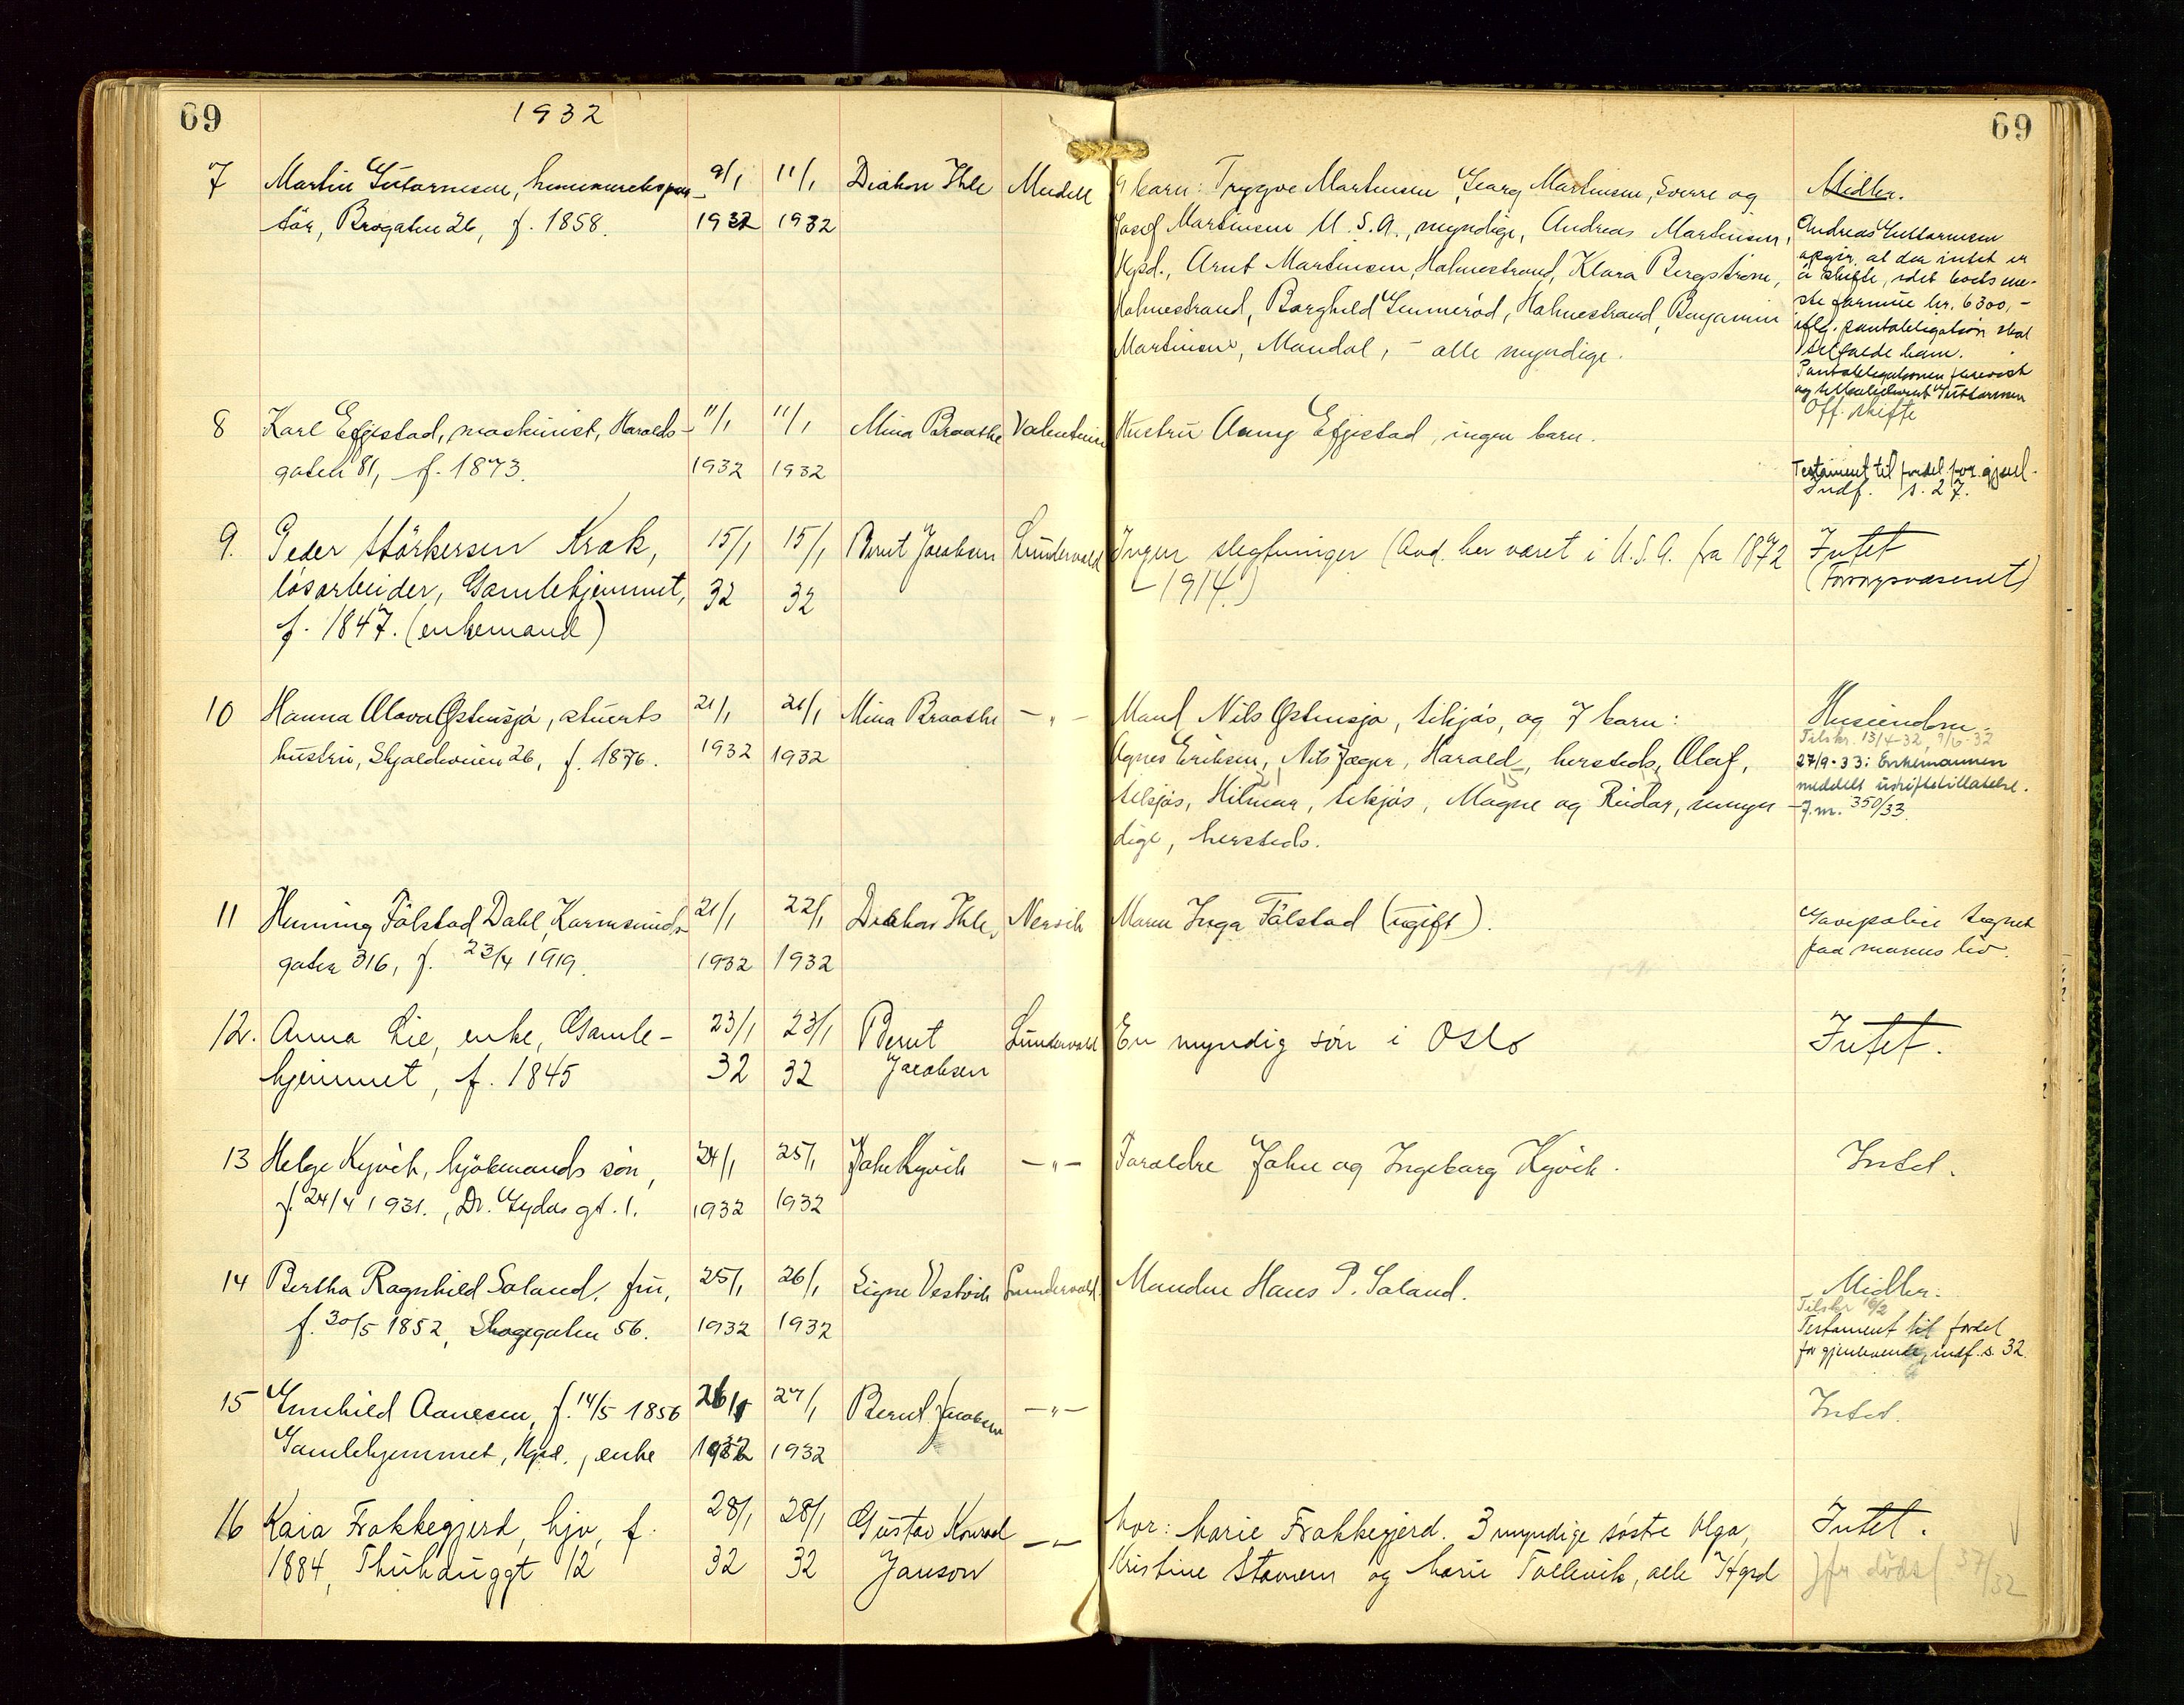 69
1932
69
7 Martin Guttormsen, hermetikkspor-
tör, Brogaten 26, f. 1858.
9/1 1932
11/1 1932
Diakon Ihle
Meidell
9 barn: Trygve Martinsen, Georg Martinsen, Sverre og
Josef Martinsen U.S.A., myndige, Andreas Martinsen,
Hgsd., Arnt Martinsen, Holmestrand, Klara Bergström,
Holmestrand, Borghild Gunneröd, Holmestrand, Benjamin
Martinsen, Mandal, - alle myndige.
Midler.
Andreas Guttormsen
opgir, at der intet er
å skifte, idet boets ene-
ste formue kr. 6300,-
iflg. pantobligation skal
tilfalde ham.
Pantobligationen forevist
og Guttormsen
8 Karl Effjestad, maskinist, Haralds-
gaten 81, f. 1873.
11/1 1932
11/1 1932
Mina Braathe
Valentin
Hustru Anny Effjestad, ingen barn.
Off. skifte
Testament til fordel for gjenl.
Indf. s. 27.
9. Peder Störkersen Krak,
lösarbeider, Gamlehjemmet,
f. 1847. (enkemand)
15/1 32
15/1 32
Bernt Jacobsen
Lundervold
Ingen slegtninger (Avd. har været i U.S.A. fra 1872
- 1914.)
Intet
(Forsorgsvæsenet)
10 Hanna Olava Østensjø, stuerts
hustru, Skjoldveien 26, f. 1876.
21/1 1932
21/1 1932
Mina Braathe
-"-
Mand Nils Østensjø, tilsjös, og 7 barn:
Agnes Eriksen, Nils Jæger, Harald, hersteds, Olaf,
tilsjös, Hilmar, tilsjös, Magne og Reidar, umyn-
dige, hersteds.
Huseiendom.
Tilskr. 13/4-32, 9/6-32
27/9-33: Enkemannen
meddelt uskiftetillatelse.
J.nr. 350/33.
11 Henning Fölstad Dahl, Karmsunds-
gaten 316, f. 23/4 1919.
21/1 1932
22/1 1932
Diakon Ihle,
Nervik
Moren Inga Fölstad (ugift).
Gavepolice tegnet
paa morens liv.
12. Anna Lie, enke, Gamle-
hjemmet, f. 1845
23/1 32
23/1 32
Bernt
Jacobsen
Lundervold
En myndig sön i Oslo
Intet.
13 Helge Kyvik, kjöbmands sön,
f. 24/4 1931., Dr. Eydes gt. 1.
24/1 1932
25/1 1932
John Kyvik
-"-
Foreldre John og Ingeborg Kyvik.
Intet.
14 Bertha Ragnhild Soland, fru,
f. 30/5 1852, Skogegaten 56.
25/1 1932
26/1 1932
Signe Vestvik
Lundervold.
Manden Hans P. Soland.
Midler.
Tilskr 16/2
Testament til fordel
for gjenlevende, indf. s. 32.
15 Gunhild Aanesen, f. 14/5 1856
Gamlehjemmet, Hgsd., enke
26/1 1932
27/1 1932
Bernt Jacobsen
-"-
Intet.
16 Kaia Frakkegjerd, hjv, f.
1884, Thuhauggt 12
28/1 32
28/1 32
Gustav Konrad
Janson
-"-
Mor: Marie Frakkegjerd. 3 myndige söstre Olga,
Kristine Stamnes og Marie Tollevik, alle Hgsd
Intet.
jfr dödsf 37/32